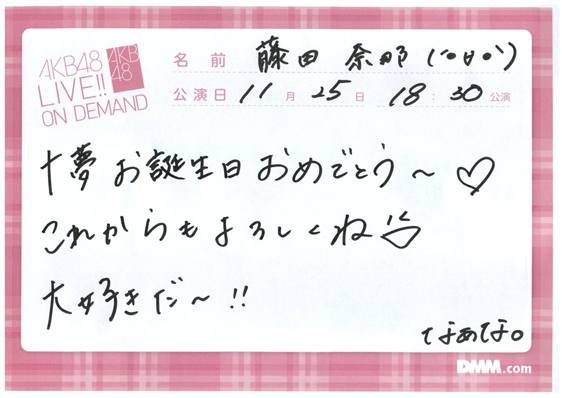 AKB48
LIVE!!
ON DEMAND
AKB
48
名前 藤田 奈那 (°∀°)
公演日 11月 25日 18:30公演
十夢 お誕生日おめでとう〜♡
これからもよろしくね
大好きだ〜!!
なぁな。
DMM.com